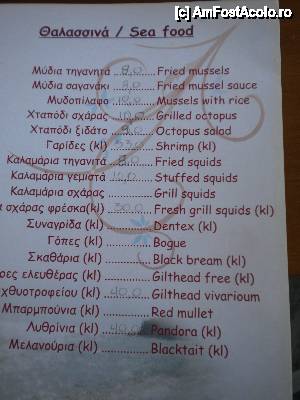 (c) AmFostAcolo.ro
Θαλασσινά / Sea food
Μύδια τηγανητά 8,0 Fried mussels
Μύδια σαγανάκι 9,0 Fried mussel sauce
Μυδοπίλαφο 10,0 Mussels with rice
Χταπόδι σχάρας 10,0 Grilled octopus
Χταπόδι ξιδάτο 9,0 Octopus salad
Γαρίδες (kl) Shrimp (kl)
Καλαμάρια τηγανιτά 8,0 Fried squids
Καλαμάρια γεμιστά 10,0 Stuffed squids
Καλαμάρια σχάρας Grill squids
σχάρας φρέσκα(kl) 30,0 Fresh grill squids (kl)
Συναγρίδα (kl) Dentex (kl)
Γόπες (kl) Bogue
Σκαθάρια (kl) Black bream (kl)
ρες ελευθέρας (kl) Gilthead free (kl)
χθυοτροφείου (kl) 40,0 Gilthead vivarioum
Μπαρμπούνια (kl) Red mullet
Λυθρίνια (kl) 40,0 Pandora (kl)
Μελανούρια (kl) Blacktait (kl)